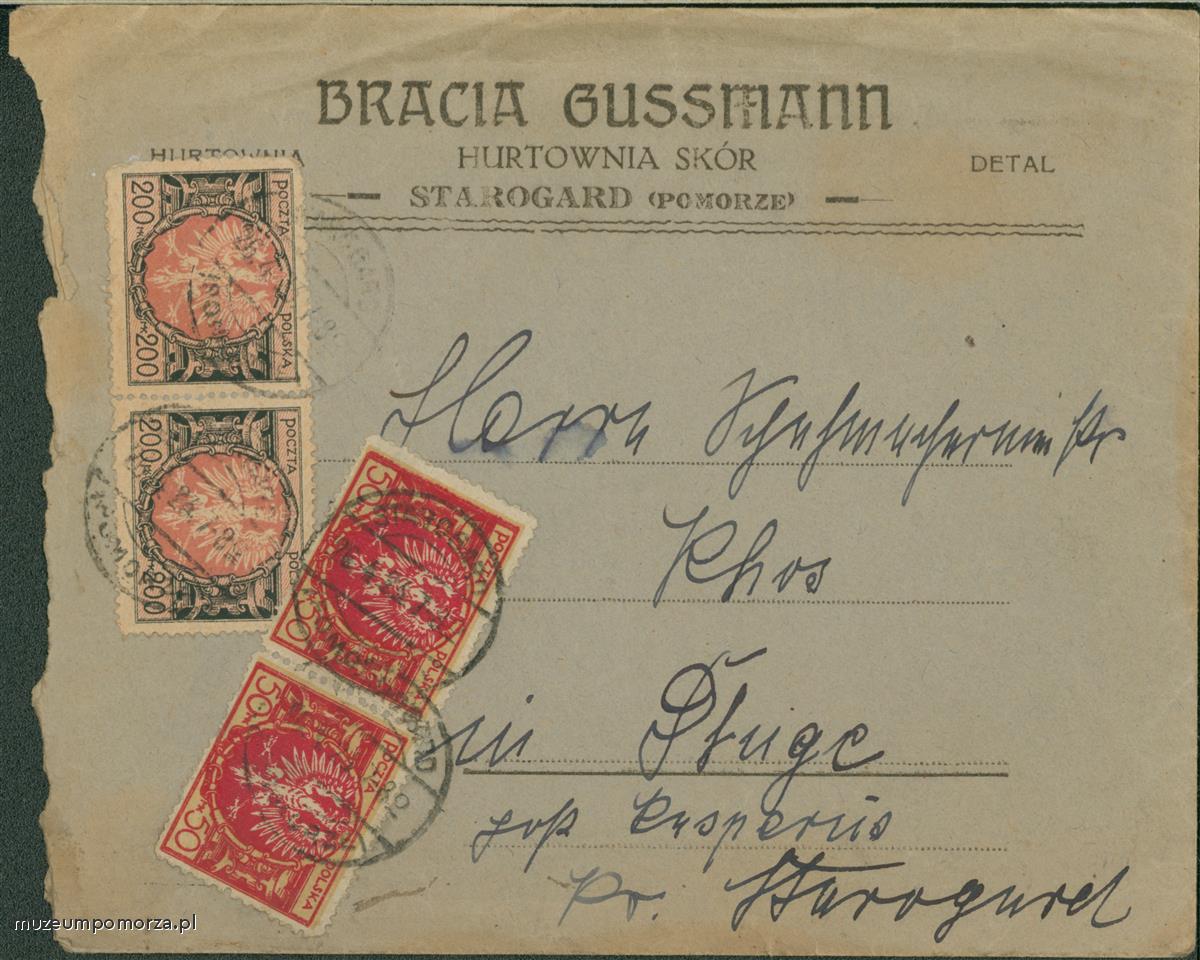 BRACIA GUSSMANN
HURTOWNIA HURTOWNIA SKÓR DETAL
STAROGARD (POMORZE)
POCZTA POLSKA
200 M 200
POCZTA POLSKA
200 M 200
POCZTA POLSKA
50 M 50
POCZTA POLSKA
50 M 50
Herrn Schuhmachermeister
in Długe
post
Kr. Starogard
muzeumpomorza.pl